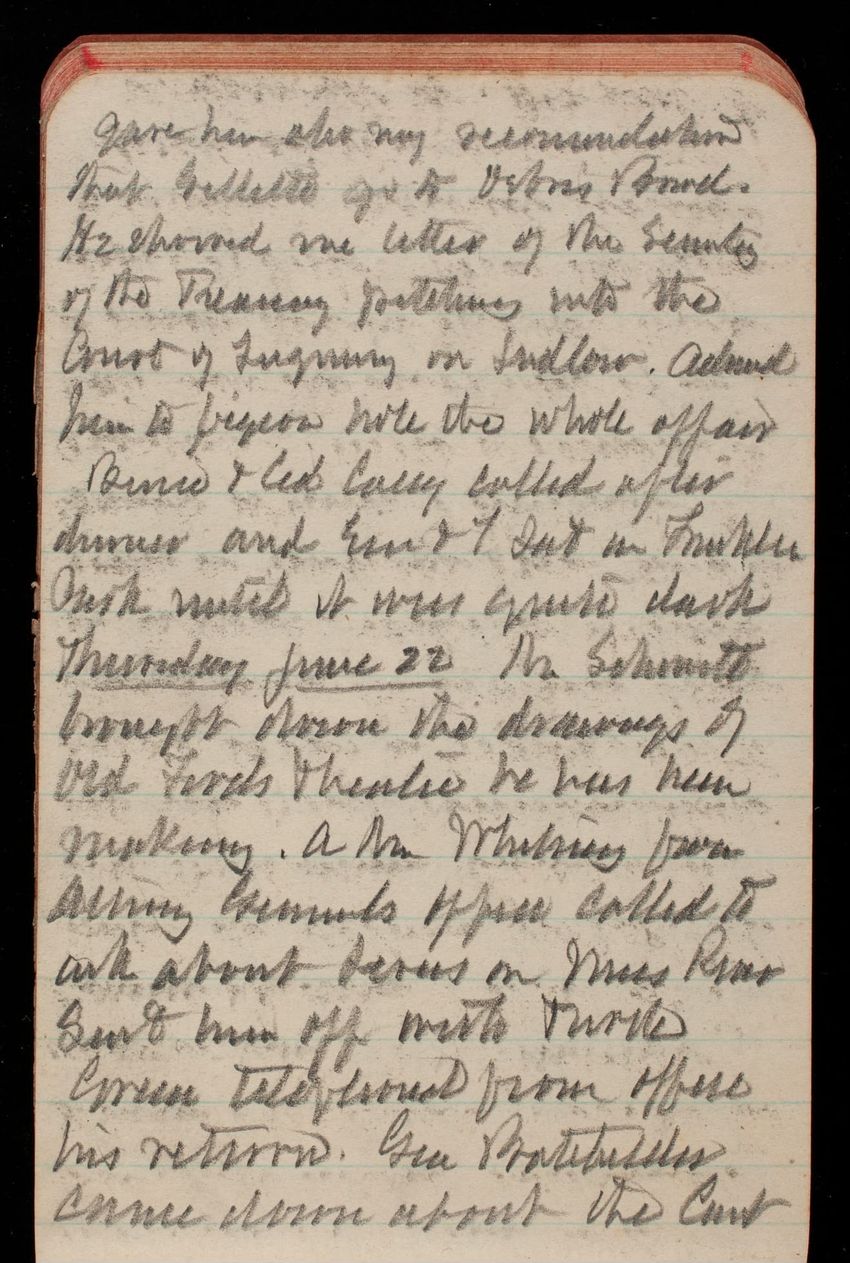 gave him also my recomendation
that Gillette go to Debris Board.
He showed me letter of the Secretary
of the Treasury pitching into the
Court of Inquiry on Ludlow. Advised
him to pigeon hole the whole affair
Bernie & Ced Casey called after
dinner and Em & I sat in Franklin
Park until it was quite dark
Thursday June 22 Mr Schmitt
brought down the drawings of
Old Fords Theatre he has been
making. A Mr Whitney from
Attiny Generals office called to
ask about Levees on Miss River
Sent him off with Turtle
Green telephoned from office
his return. Gen Batchelder
came down about the Court